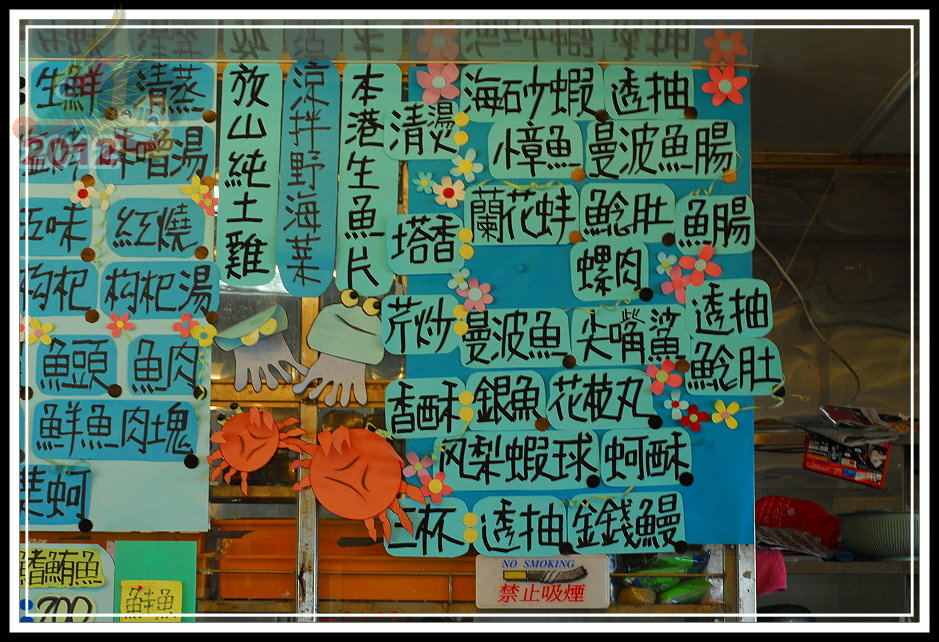 生鮮 清蒸
2012 湯
五味 紅燒
枸杞 枸杞湯
魚頭 魚肉
鮮魚肉塊
蚵
鮪魚
鮮魚
放山純土雞
涼拌野海菜
本港生魚片
清湯 海砂蝦 透抽
小章魚 曼波魚腸
塔香 蘭花蚌 鯰肚 魚腸
螺肉
芹炒 曼波魚 尖嘴鯊 透抽
鯰肚
香酥 銀魚 花枝丸
风梨蝦球 蚵酥
三杯 透抽 金錢鰻
NO SMOKING
禁止吸煙